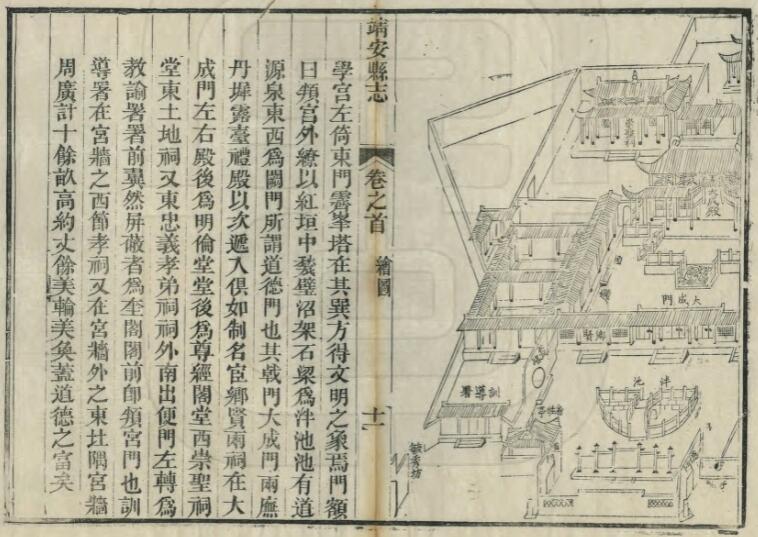 崇聖祠
大成殿
大成門
鄉賢
泮池
訓導署
毓秀坊
靖安縣志
卷之首
繪圖
十一
學宮左倚東門雩峯塔在其巽方得文明之象焉門額
曰頖宮外繚以紅垣中甃璧沼架石梁爲泮池池有道
源泉東西爲闢門所謂道德門也其戟門大成門兩廡
丹墀露臺禮殿以次遞入俱如制名宦鄉賢兩祠在大
成門左右殿後爲明倫堂堂後爲尊經閣堂西崇聖祠
堂東土地祠又東忠義孝弟祠祠外南出便門左轉爲
教諭署署前翼然屏蔽者爲奎閣閣前卽頖宮門也訓
導署在宮牆之西節孝祠又在宮牆外之東北隅宮牆
周廣計十餘畝高約丈餘美輪美奐蓋道德之富矣